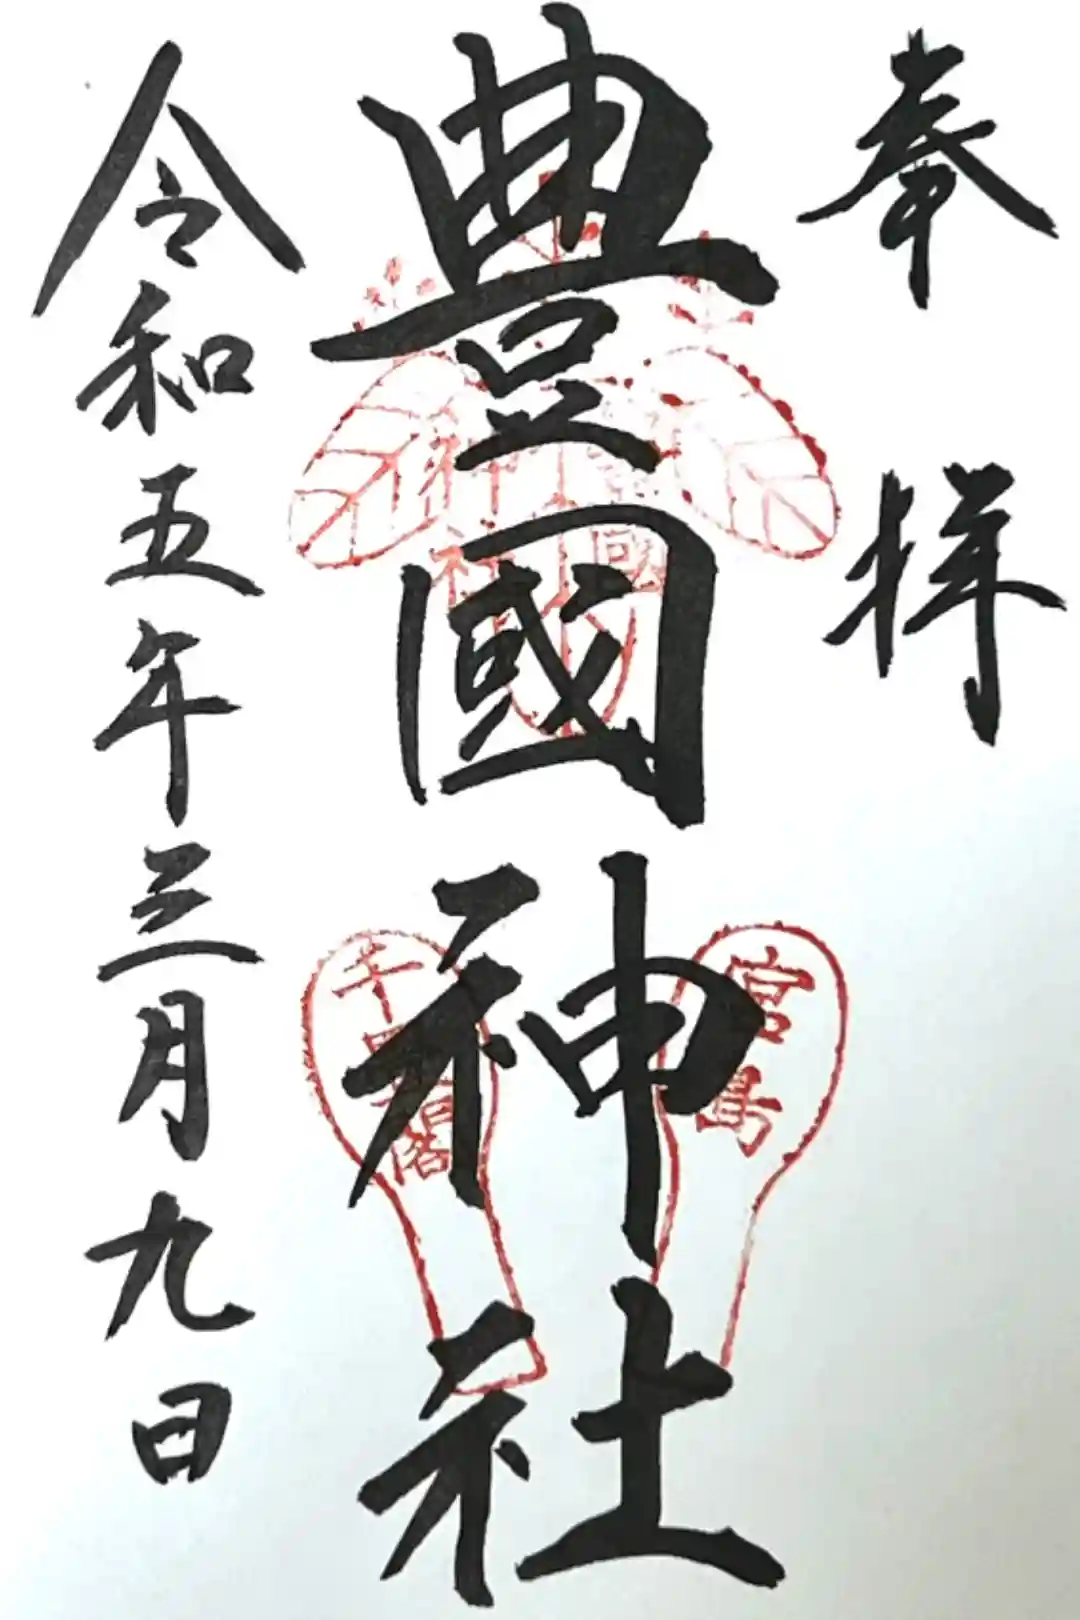 奉拝
豊國神社
豊國
神社
宮島
千畳閣
令和五年三月九日